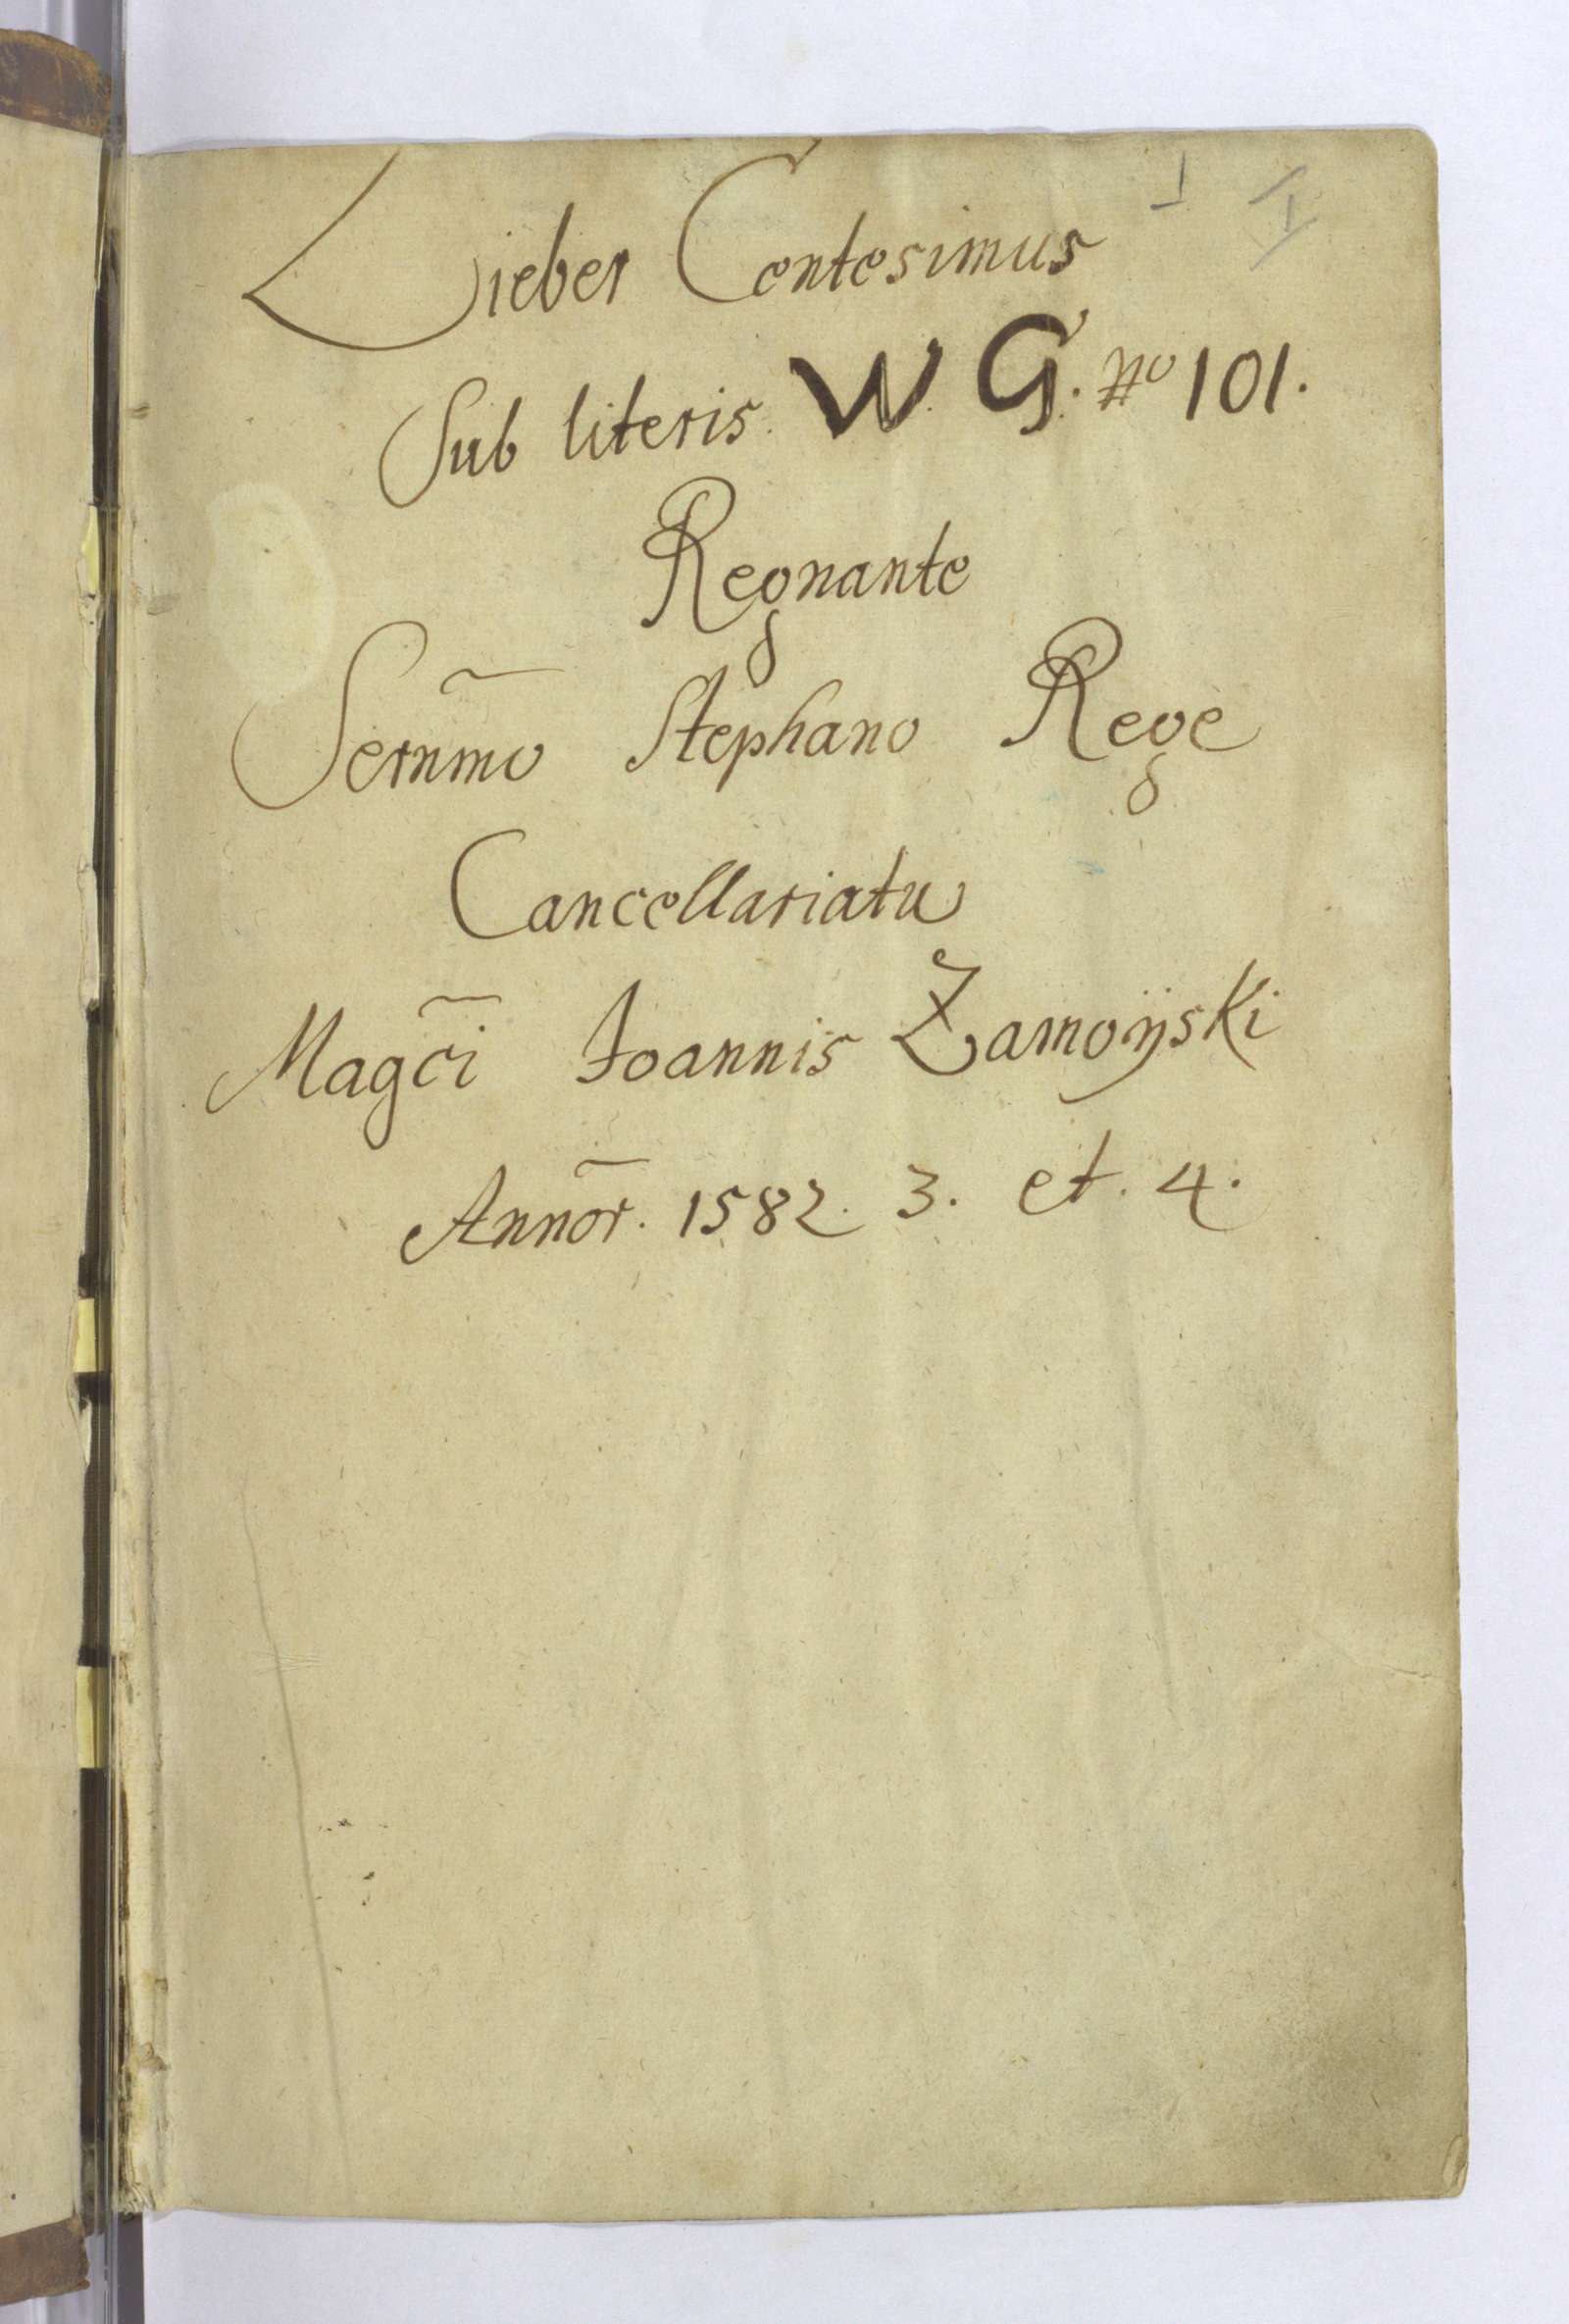 Lieber Centesimus
Sub literis. W. G. No 101.
Regnante
Sernmo Stephano Rege
Cancellariatu
Magci Joannis Zamoÿski
Annor. 1582. 3. et. 4.